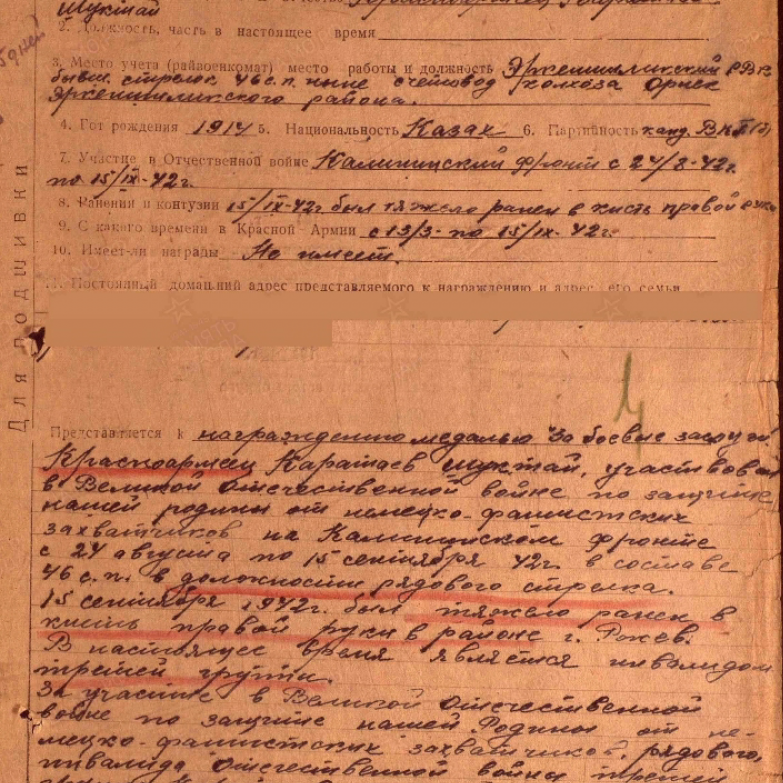 Шуктай
2. Должность, часть в настоящее время
3. Место учета (райвоенкомат) место работы и должность Эркеншиликский РВК
бывш. стрелок 46 с.п. ныне счетовод колхоза Орнек
Эркеншиликского района.
4. Год рождения 1914 5. Национальность Казах 6. Партийность канд. ВКП(б)
7. Участие в Отечественной войне Калининский фронт с 24/8-42г.
по 15/IX-42г.
8. Ранения и контузии 15/IX-42г был тяжело ранен в кисть правой руки
9. С какого времени в Красной Армии с 13/3- по 15/IX-42г.
10. Имеет-ли награды Не имеет.
11. Постоянный домашний адрес представляемого к награждению и адрес его семьи
Для подшивки
Представляется к награждению медалью "За боевые заслуги"
Красноармеец Каратаев Шуктай, участвовал
в Великой Отечественной войне по защите
нашей родины от немецко-фашистских
захватчиков на Калининском фронте
с 24 августа по 15 сентября 42г. в составе
46 с.п. в должности рядового стрелка.
15 сентября 1942г. был тяжело ранен в
кисть правой руки в районе г. Ржев.
В настоящее время является инвалидом
третей группы.
За участие в Великой Отечественной
войне по защите нашей Родины от не-
мецко-фашистских захватчиков, рядового,
инвалида Отечественной войны третей